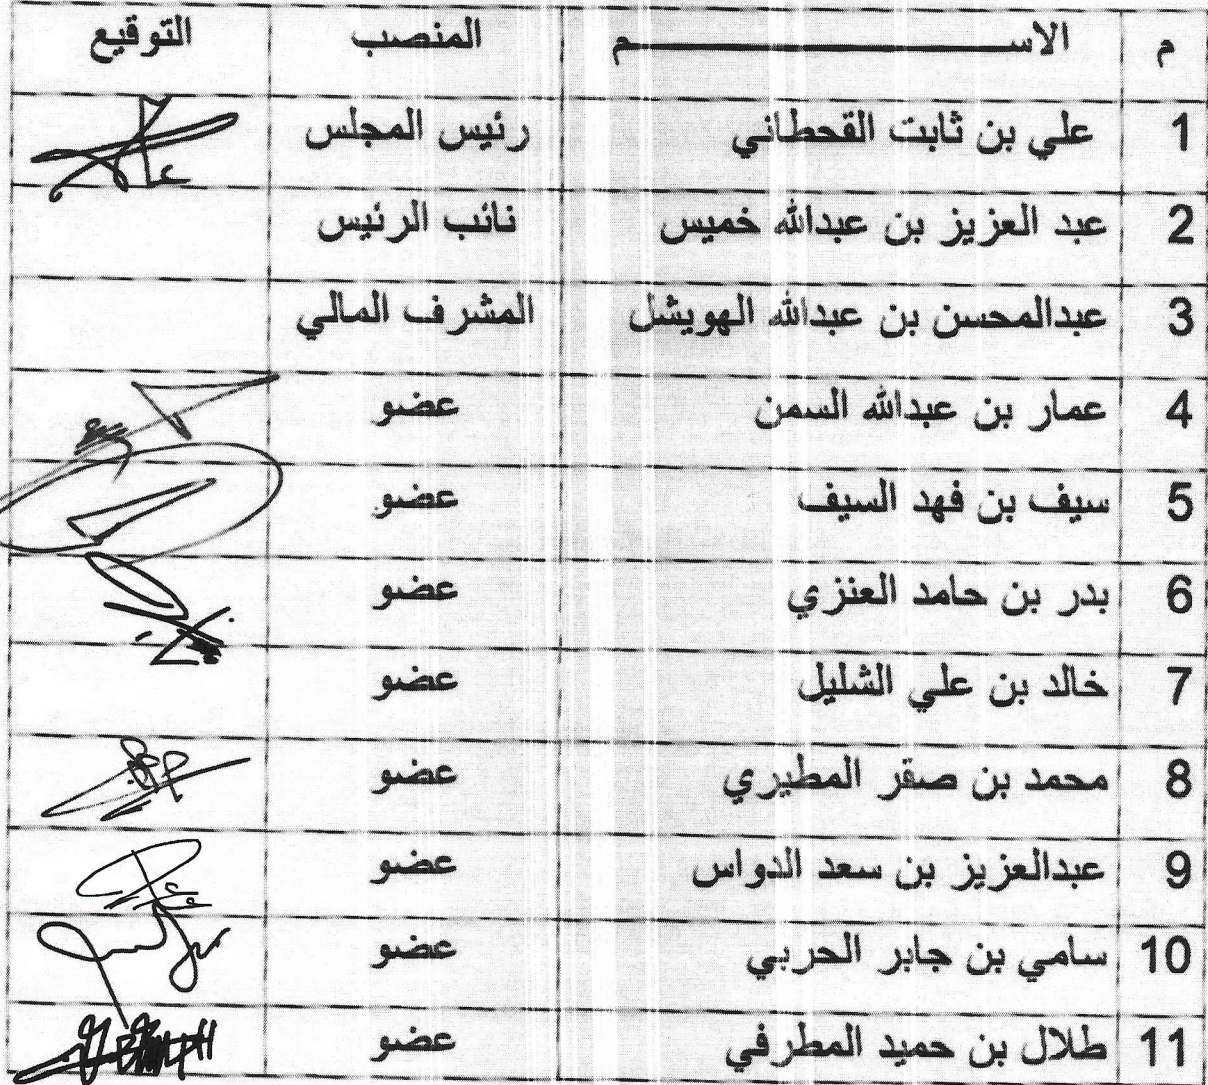 م الاســــــــــــم المنصب التوقيع
1 علي بن ثابت القحطاني رئيس المجلس
2 عبد العزيز بن عبدالله خميس نائب الرئيس
3 عبدالمحسن بن عبدالله الهويشل المشرف المالي
4 عمار بن عبدالله السمن عضو
5 سيف بن فهد السيف عضو
6 بدر بن حامد العنزي عضو
7 خالد بن علي الشليل عضو
8 محمد بن صقر المطيري عضو
9 عبدالعزيز بن سعد الدواس عضو
10 سامي بن جابر الحربي عضو
11 طلال بن حميد المطرفي عضو